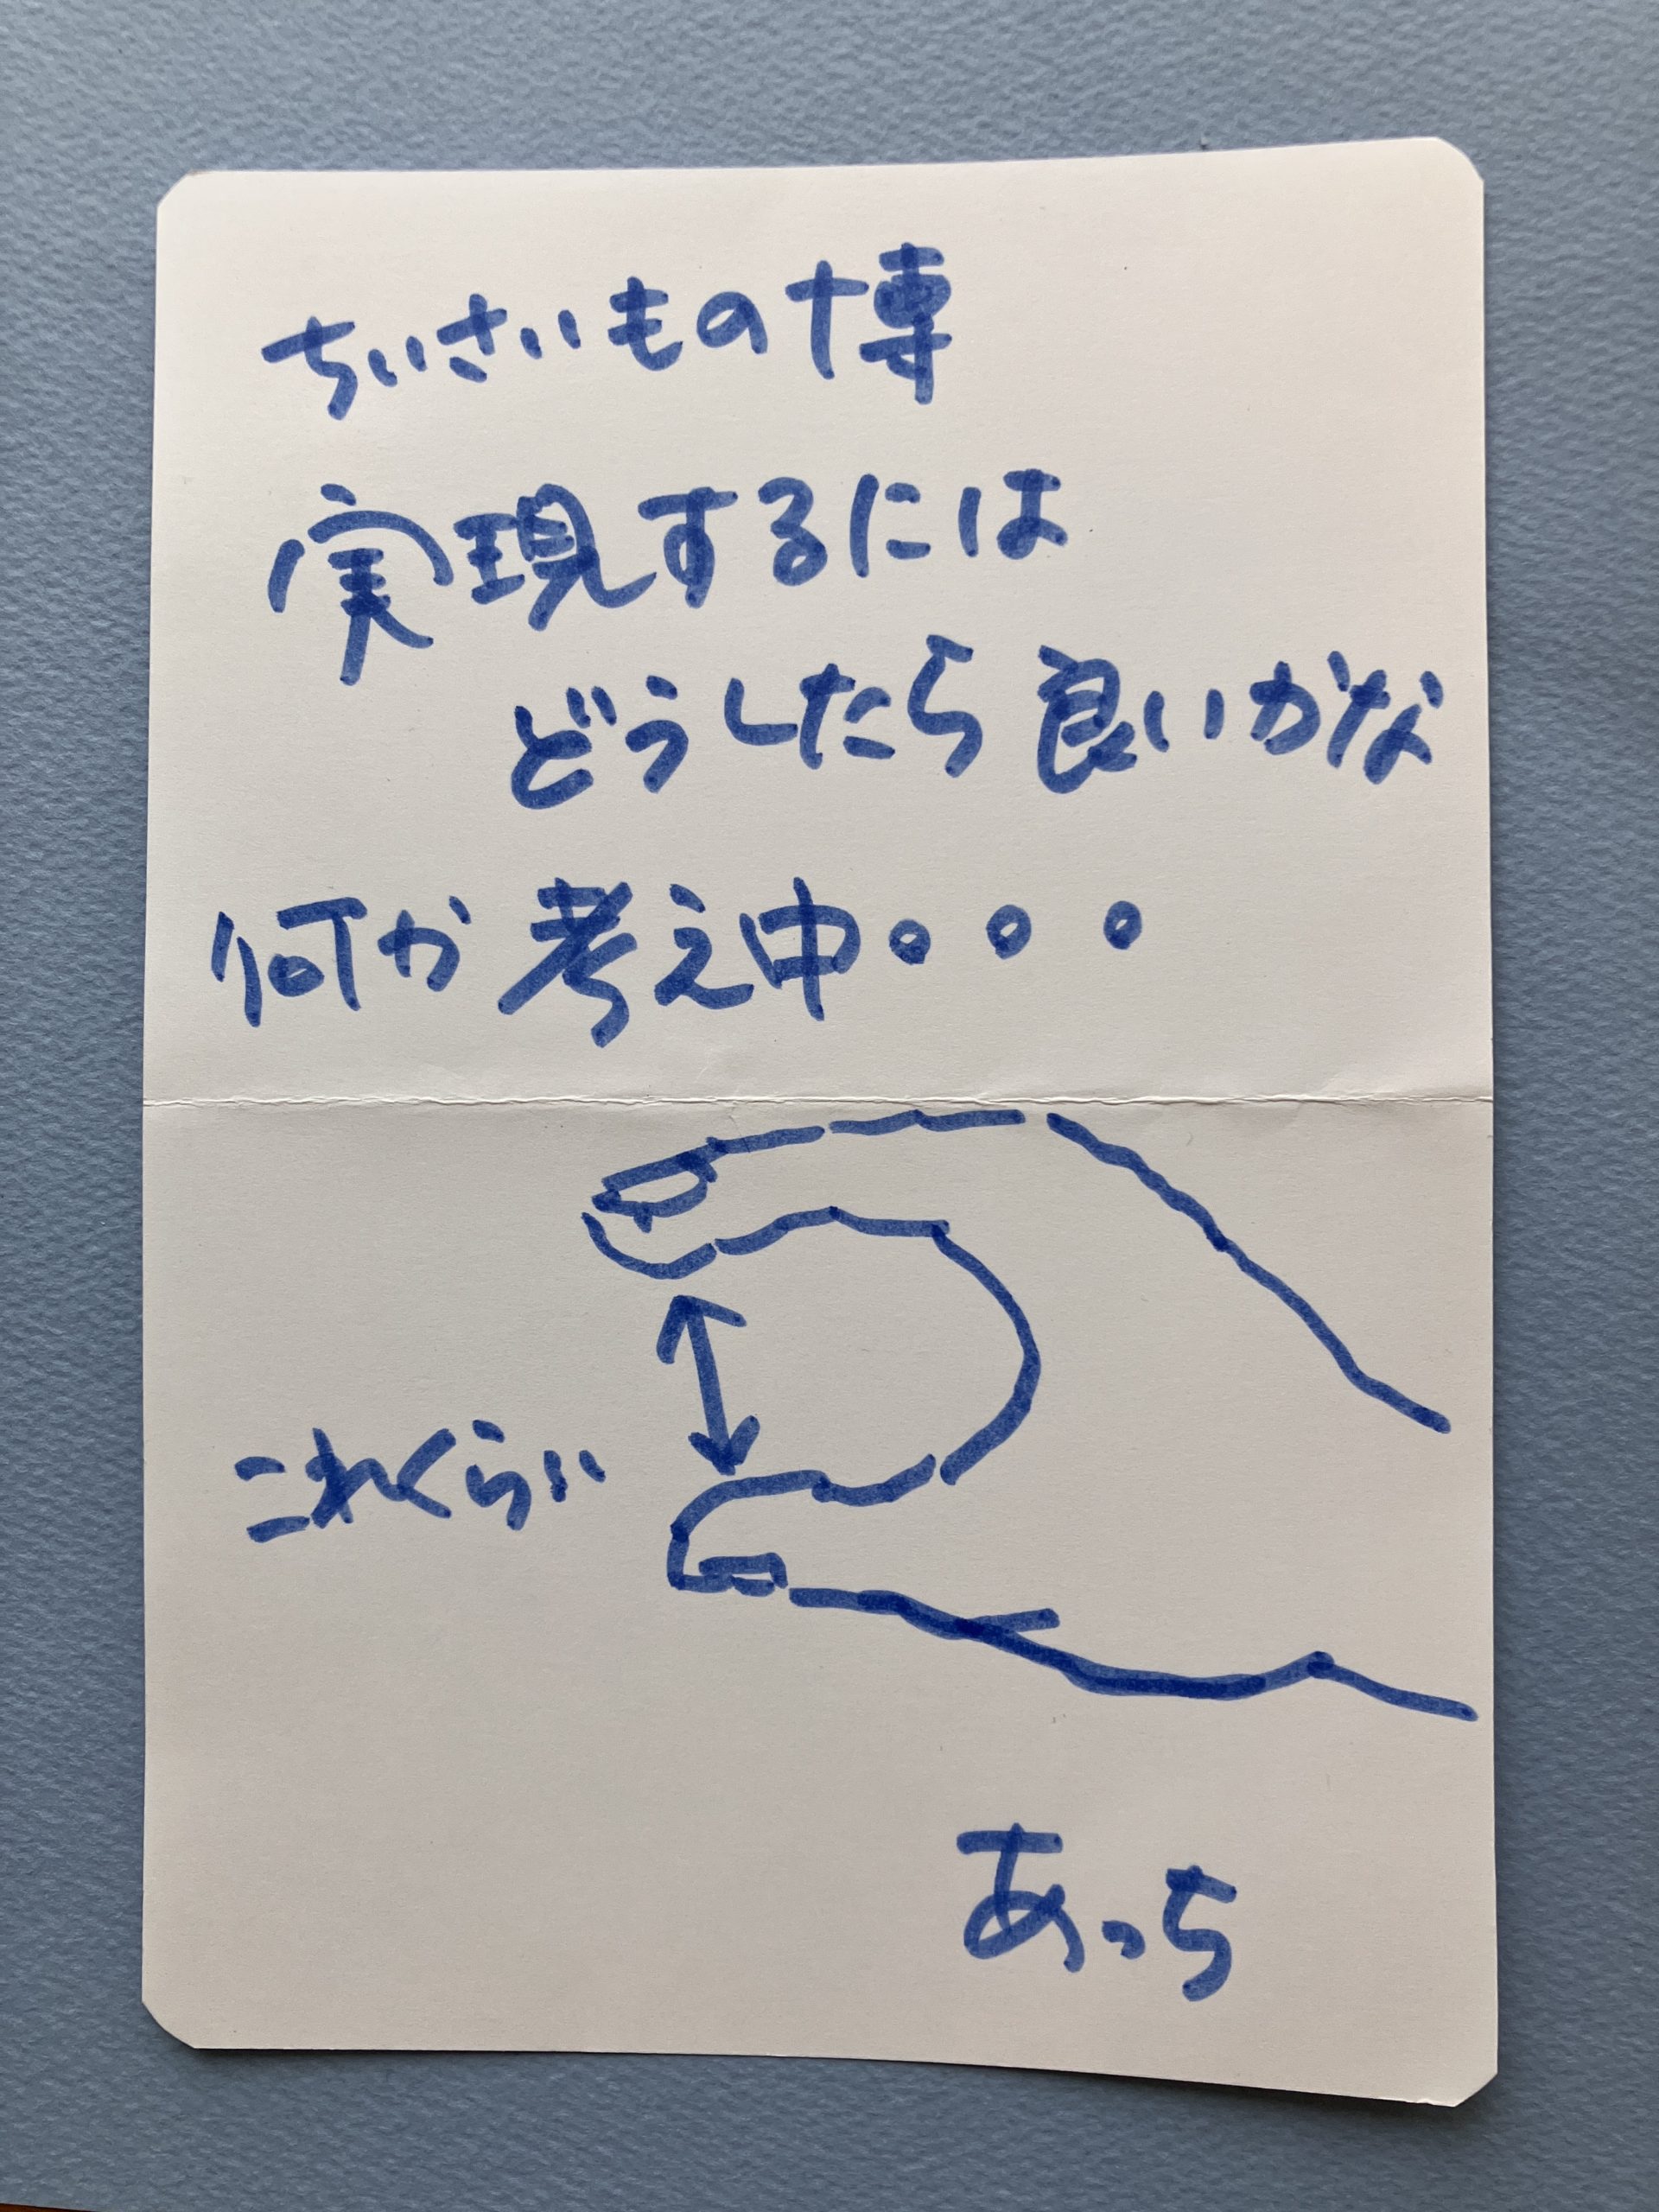 ちいさいもの博
実現するには
どうしたら良いかな
何か考え中・・・
これくらい
あっち